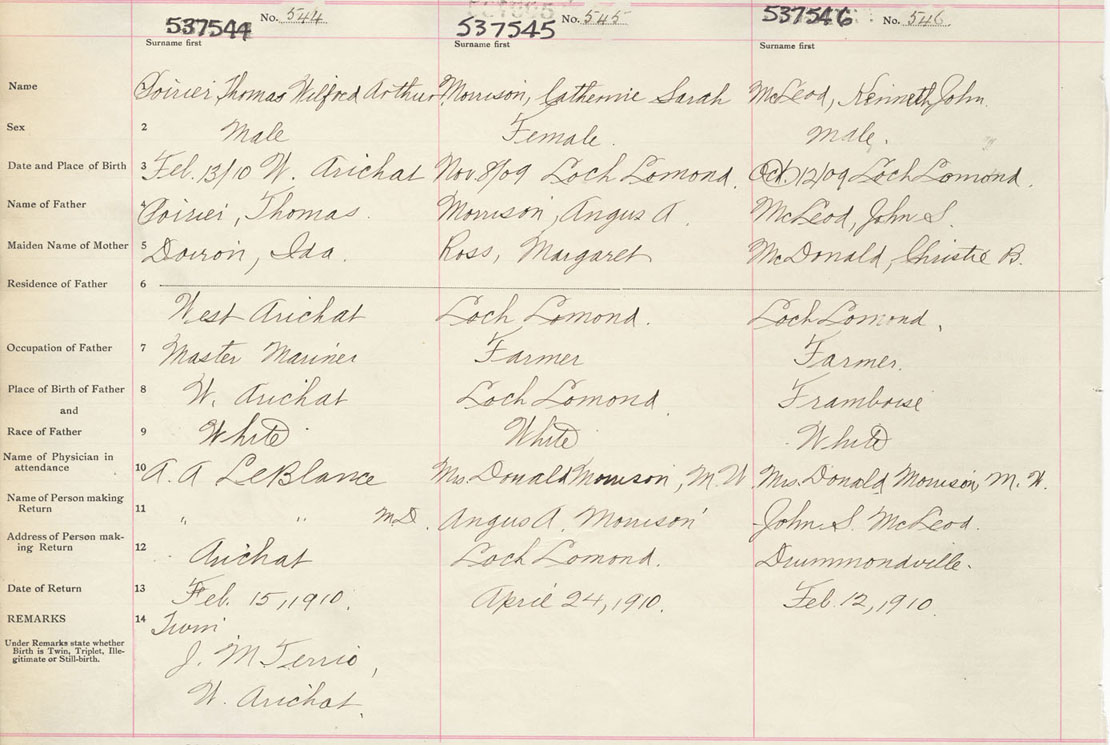 No. 544 No. 545 No. 546
537544 537545 537546
Surname first Surname first Surname first
Name Poirier, Thomas Wilfred Arthur Morrison, Catherine Sarah McLeod, Kenneth John
Sex 2 Male Female. Male.
Date and Place of Birth 3 Feb. 13/10 W. Arichat Nov 8/09 Loch Lomond. Oct. 12/09 Loch Lomond.
Name of Father Poirier, Thomas. Morrison, Angus A. McLeod, John S.
Maiden Name of Mother 5 Doiron, Ida. Ross, Margaret McDonald, Christie B.
Residence of Father 6
West Arichat Loch Lomond. Loch Lomond.
Occupation of Father 7 Master Mariner Farmer Farmer.
Place of Birth of Father 8 W. Arichat Loch Lomond. Framboise
and
Race of Father 9 White White White
Name of Physician in
attendance 10 A. A LeBlance Mrs. Donald Morrison, M.W. Mrs. Donald Morrison, M. W.
Name of Person making
Return 11 " " M.D. Angus A. Morrison John S. McLeod.
Address of Person mak-
ing Return 12 Arichat Loch Lomond. Drummondville.
Date of Return 13 Feb. 15, 1910. April 24, 1910. Feb. 12, 1910.
REMARKS 14 Twin
Under Remarks state whether
Birth is Twin, Triplet, Ille-
gitimate or Still-birth.
J. M Terrio,
W. Arichat.